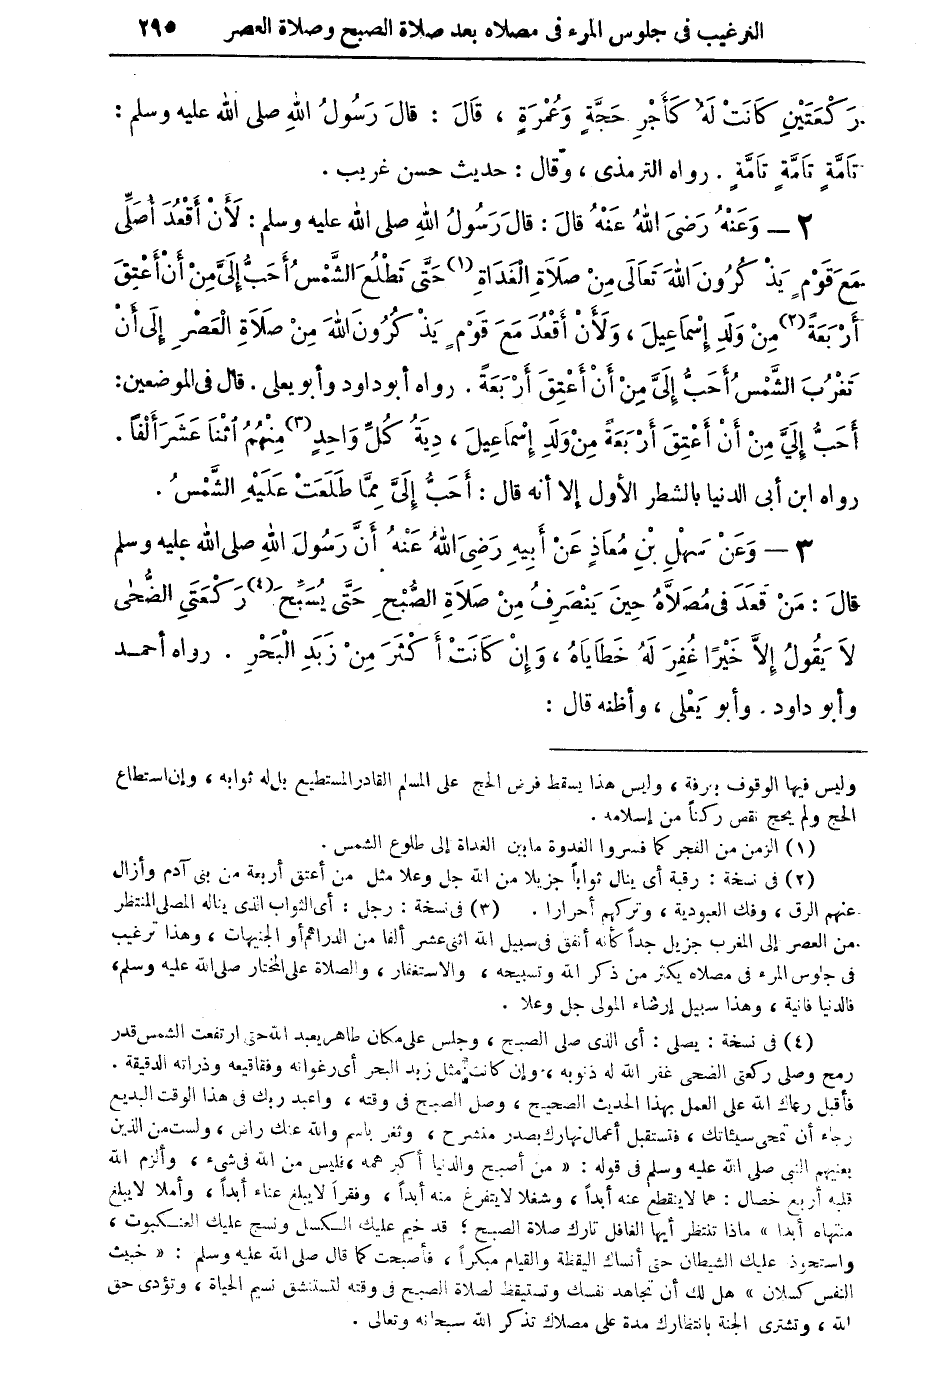 الترغيب فى جلوس المرء فى مصلاه بعد صلاة الصبح وصلاة العصر ٢٩٥
رَكْعَتَيْنِ كَانَتْ لَهُ كَأَجْرِ حَجَّةٍ وَعُمْرَةٍ ، قَالَ : قالَ رَسُولُ اللهِ صلى الله عليه وسلم :
تَامَّةٍ تَامَّةٍ تَامَّةٍ . رواه الترمذى ، وقال : حديث حسن غريب .
٢ — وَعَنْهُ رَضَىَ اللهُ عَنْهُ قالَ : قالَ رَسُولُ اللهِ صلى الله عليه وسلم : لَأَنْ أَقْعُدَ أُصَلِّى
مَعَ قَوْمٍ يَذْكُرُونَ اللهَ تَعَالَى مِنْ صَلَاةِ الْغَدَاةِ (١) حَتَّى تَطْلُعَ الشَّمْسُ أَحَبُّ إِلَىَّ مِنْ أَنْ أَعْتِقَ
أَرْبَعَةً (٢) مِنْ وَلَدِ إِسْمَاعِيلَ ، وَلَأَنْ أَقْعُدَ مَعَ قَوْمٍ يَذْكُرُونَ اللهَ مِنْ صَلَاةِ الْعَصْرِ إِلَى أَنْ
تَغْرُبَ الشَّمْسُ أَحَبُّ إِلَىَّ مِنْ أَنْ أَعْتِقَ أَرْبَعَةً . رواه أبو داود وأبو يعلى . قال فى الموضعين :
أَحَبُّ إِلَيَّ مِنْ أَنْ أَعْتِقَ أَرْبَعَةً مِنْ وَلَدِ إِسْمَاعِيلَ ، دِيَةُ كُلِّ وَاحِدٍ (٣) مِنْهُمُ اثْنَا عَشَرَ أَلْفًا .
رواه ابن أبى الدنيا بالشطر الأول إلا أنه قال : أَحَبُّ إِلَىَّ مِمَّا طَلَعَتْ عَلَيْهِ الشَّمْسُ .
٣ — وَعَنْ سَهْلِ بْنِ مُعَاذٍ عَنْ أَبِيهِ رَضِىَ اللهُ عَنْهُ أَنَّ رَسُولَ اللهِ صلى الله عليه وسلم
قالَ : مَنْ قَعَدَ فى مُصَلَّاهُ حِينَ يَنْصَرِفُ مِنْ صَلَاةِ الصُّبْحِ حَتَّى يُسَبِّحَ (٤) رَكْعَتَىِ الضُّحٰى
لاَ يَقُولُ إِلاَّ خَيْرًا غُفِرَ لَهُ خَطَايَاهُ ، وَإِنْ كَانَتْ أَكْثَرَ مِنْ زَبَدِ الْبَحْرِ . رواه أحمد
وأبو داود . وأبو يَعْلى ، وأظنه قال :
وليس فيها الوقوف بعرفة ، وليس هذا يسقط فرض الحج على المسلم القادر المستطيع بل له ثوابه ، وإن استطاع
الحج ولم يحج نقص ركناً من إسلامه .
(١) الزمن من الفجر كما فسروا الغدوة مابين الغداة إلى طلوع الشمس .
(٢) فى نسخة : رقبة أى ينال ثواباً جزيلا من الله جل وعلا مثل من أعتق أربعة من بنى آدم وأزال
عنهم الرق ، وفك العبودية ، وتركهم أحرارا . (٣) فى نسخة : رجل : أى الثواب الذى يناله المصلى المنتظر
من العصر إلى المغرب جزيل جداً كأنه أنفق فى سبيل الله اثنى عشر ألفا من الدراهم أو الجنيهات ، وهذا ترغيب
فى جلوس المرء فى مصلاه يكثر من ذكر الله وتسبيحه ، والاستغفار ، والصلاة على المختار صلى الله عليه وسلم ،
فالدنيا فانية ، وهذا سبيل إرضاء المولى جل وعلا .
(٤) فى نسخة : يصلى : أى الذى صلى الصبح ، وجلس على مكان طاهر يعبد الله حتى ارتفعت الشمس قدر
رمح وصلى ركعتى الضحى غفر الله له ذنوبه ، وإن كانت مثل زبد البحر أى رغوانه وفقاقيعه وذراته الدقيقة .
فأقبل رعاك الله على العمل بهذا الحديث الصحيح ، وصل الصبح فى وقته ، واعبد ربك فى هذا الوقت البديع
رجاء أن تمحى سيئاتك ، فتستقبل أعمال نهارك بصدر منشرح ، وثغر باسم والله عنك راض ، ولست من الذين
يعنيهم النبى صلى الله عليه وسلم فى قوله : « من أصبح والدنيا أكبر همه ، فليس من الله فى شىء ، وألزم الله
قلبه أربع خصال : هما لاينقطع عنه أبداً ، وشغلا لايتفرغ منه أبداً ، وفقراً لايبلغ غناء أبداً ، وأملا لايبلغ
منتهاه أبدا » ماذا تنتظر أيها الغافل تارك صلاة الصبح ؛ قد خيم عليك الكسل ونسج عليك العنكبوت ،
واستحوذ عليك الشيطان حتى أنساك اليقظة والقيام مبكراً ، فأصبحت كما قال صلى الله عليه وسلم : « خبيث
النفس كسلان » هل لك أن تجاهد نفسك وتستيقظ لصلاة الصبح فى وقته لتستنشق نسيم الحياة ، وتؤدى حق
الله ، وتشترى الجنة بانتظارك مدة على مصلاك تذكر الله سبحانه وتعالى .